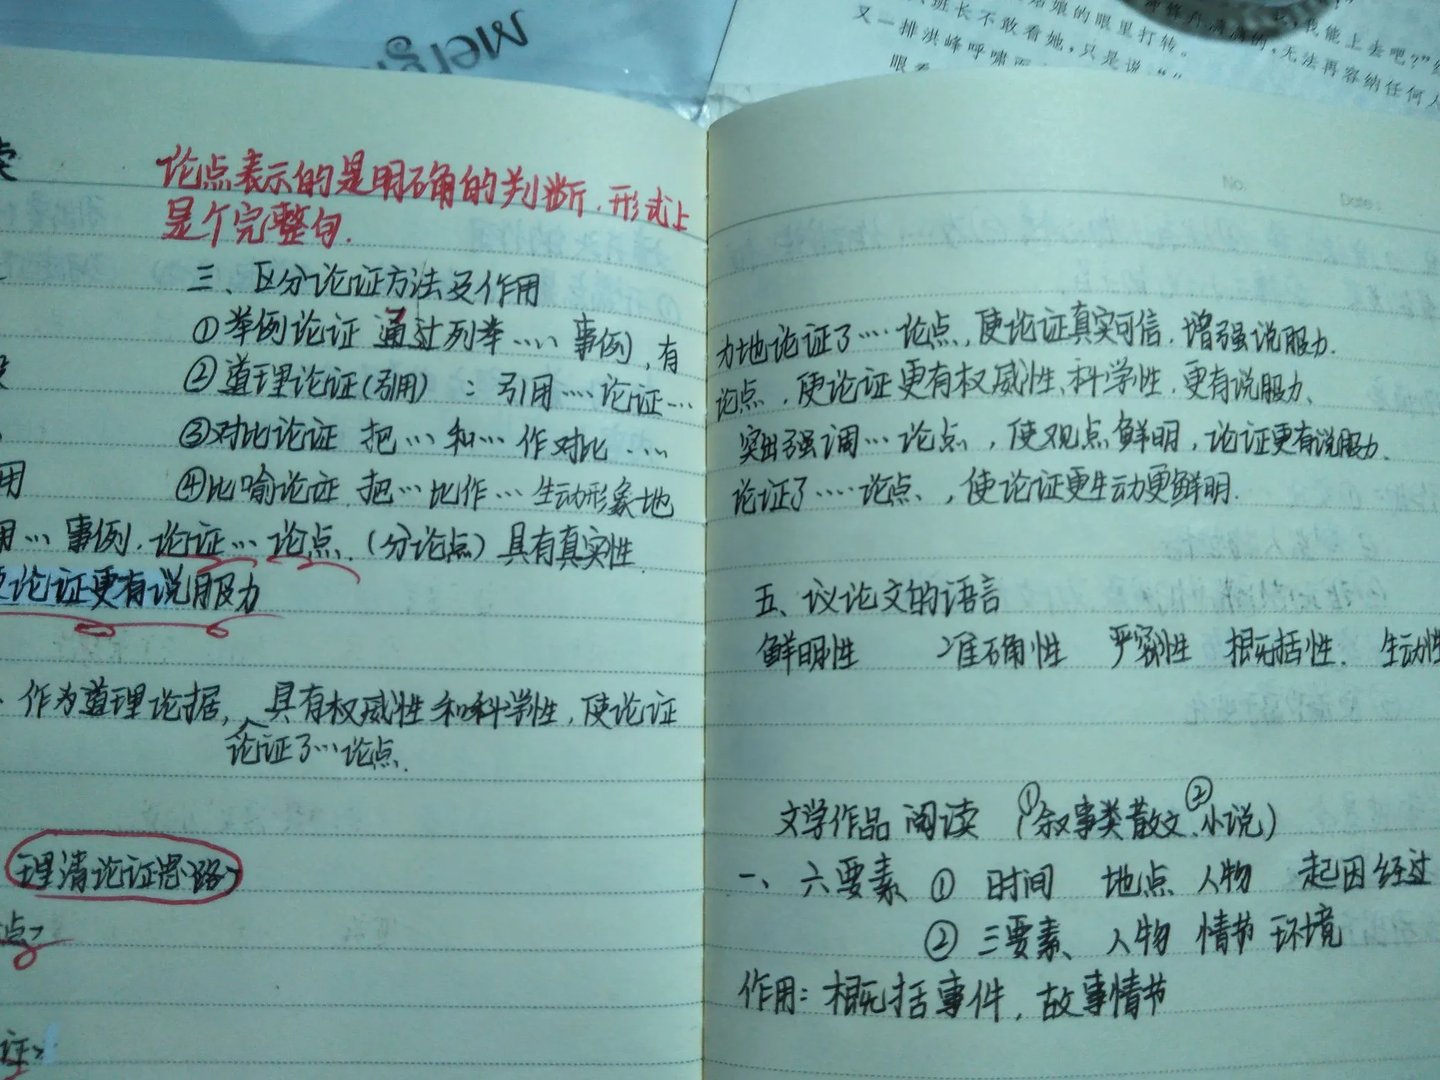 Mel
姑娘的眼里打转。
班长不敢看她,只是说:“
又一排洪峰呼啸而
眼看
我能上去吧?”
的,无法再容纳任何人
论点表示的是明确的判断.形式上
是个完整句.
三、区分论证方法及作用
①举例论证 通过列举…… 事例,有
②道理论证(引用) : 引用……论证…
③对比论证 把…和… 作对比……
④比喻论证 把…比作… 生动形象地
用… 事例.论证…论点.(分论点)具有真实性
论证更有说服力
作为道理论据,具有权威性和科学性,使论证
论证了…论点.
理清论证思路
点
证
No.
Date.
力地论证了……论点,使论证真实可信.增强说服力.
论点,使论证更有权威性、科学性,更有说服力、
突出强调…论点,使观点鲜明,论证更有说服力.
论证了……论点、,使论证更生动更鲜明.
五、议论文的语言
鲜明性 准确性 严密性 概括性. 生动性
文学作品 阅读 (①叙事类散文、②小说)
一、六要素 ① 时间 地点 人物 起因经过
② 三要素、人物 情节 环境
作用:概括事件,故事情节